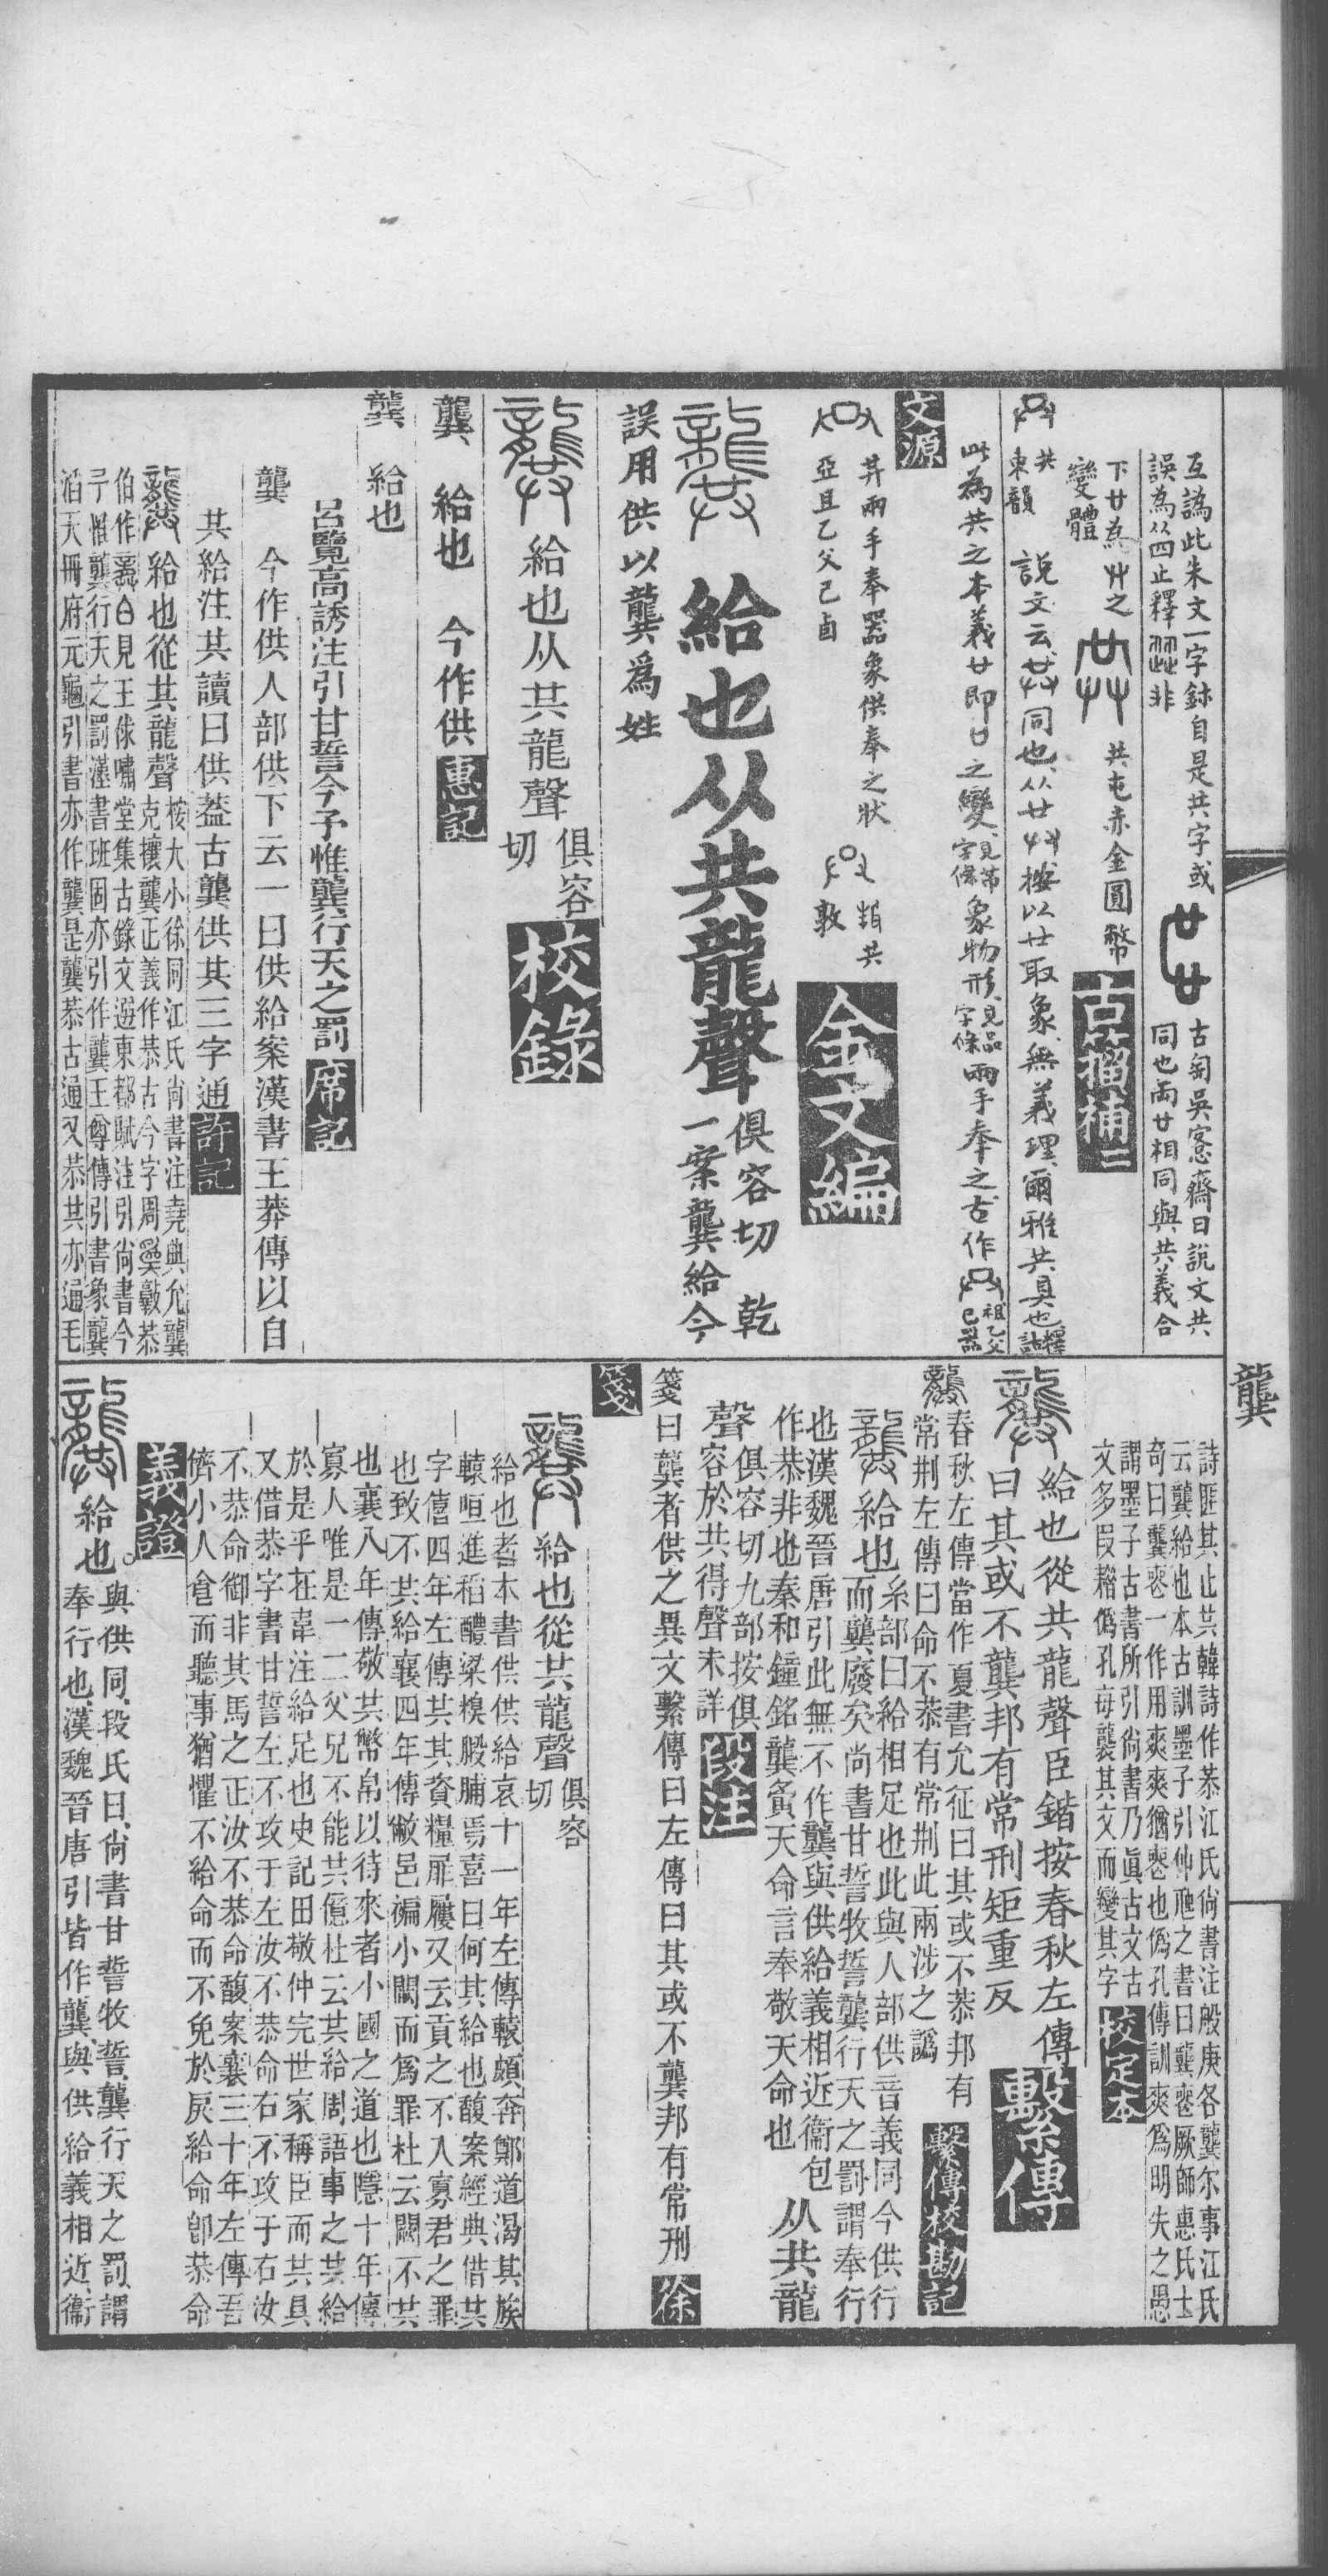 龔
互譌此朱文一字鉨自是共字或
誤為从四止釋
古匋吳愙齋曰說文共
同也兩廿相同與共義合
下廿為廾之
變體
共屯赤金圓幣
古籀補二
共
東韻
說文云同也从廿廾按以廿取象無義理爾雅共具也釋詁
此為共之本義廿即口之變見帶字條象物形見品字條兩手奉之古作祖乙父己器
文源
井兩手奉器象供奉之狀
亞且乙父己卣
共
敦
金文編
給也从共龍聲
俱容切 乾
一案龔給今
誤用供以龔爲姓
給也从共龍聲
俱容
切
校錄
龔 給也 今作供
惠記
龔 給也
呂覽高誘注引甘誓今予惟龔行天之罰
席記
龔 今作供人部供下云一曰供給案漢書王莽傳以自
共給注共讀曰供葢古龔供共三字通
許記
給也從共龍聲
桉大小徐同江氏尙書注堯典允龔
克攘龔正義作恭古今字周敦恭
伯作見王俅嘯堂集古錄文選東都賦注引尙書今
予惟龔行天之罰漢書班固亦引作龔王尊傳引書象龔
滔天冊府元龜引書亦作龔是龔恭古通又恭共亦通毛
詩匪其止共韓詩作恭江氏尙書注般庚各龔尔事江氏
云龔給也本古訓墨子引仲虺之書曰龔喪厥師惠氏士
奇曰龔喪一作用爽爽猶喪也僞孔傳訓爽爲明失之愚
謂墨子古書所引尙書乃眞古文古
文多叚耤僞孔每襲其文而變其字
校定本
給也從共龍聲臣鍇按春秋左傳
曰其或不龔邦有常刑矩重反
繫傳
龔
春秋左傳當作夏書允征曰其或不恭邦有
常刑左傳曰命不恭有常刑此兩涉之譌
繫傳校勘記
給也
糸部曰給相足也此與人部供音義同今供行
而龔廢矣尙書甘誓牧誓龔行天之罰謂奉行
也漢魏晉唐引此無不作龔與供給義相近衞包
作恭非也秦和鐘銘龔夤天命言奉敬天命也
从共龍
聲
俱容切九部按俱
容於共得聲未詳
段注
箋曰龔者供之異文繫傳曰左傳曰其或不龔邦有常刑
徐
箋
給也從共龍聲
俱容
切
給也者本書供供給哀十一年左傳轅頗奔鄭道渴其族
轅咺進稻醴粱糗腶脯焉喜曰何其給也馥案經典借共
字僖四年左傳共其資糧屝屨又云貢之不入寡君之罪
也致不共給襄四年傳敝邑褊小闕而爲罪杜云闕不共
也襄八年傳敬共幣帛以待來者小國之道也隱十年傳
寡人唯是一二父兄不能共億杜云共給周語事之共給
於是乎在韋注給足也史記田敬仲完世家稱臣而共具
又借恭字書甘誓左不攻于左汝不恭命右不攻于右汝
不恭命御非其馬之正汝不恭命馥案襄三十年左傳吾
儕小人食而聽事猶懼不給命而不免於戾給命卽恭命
義證
給也
與供同段氏曰尙書甘誓牧誓龔行天之罰謂
奉行也漢魏晉唐引皆作龔與供給義相近衞